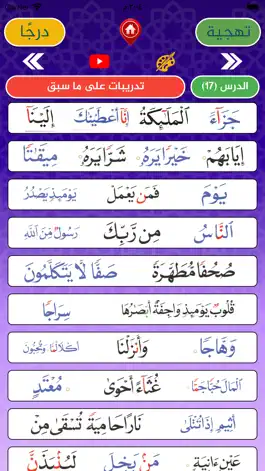 تهجية درجًا
الدرس (17) تدريبات على ما سبق
جَزَآءً ٱلْمَلَٰٓئِكَةُ إِنَّآ أَعْطَيْنَٰكَ إِلَيْنَآ
إِيَابَهُمْ خَيْرًا يَرَهُۥ شَرًّا يَرَهُۥ مِيقَٰتًا
يَوْمَ فَمَن يَعْمَلْ يَوْمَئِذٍ يَصْدُرُ
ٱلنَّاسُ مِن رَّبِّكَ رَسُولٌ مِّنَ ٱللَّهِ
صُحُفًا مُّطَهَّرَةً صَفًّا لَّا يَتَكَلَّمُونَ
قُلُوبٌ يَوْمَئِذٍ وَاجِفَةٌ أَبْصَٰرُهَا سِرَاجًا
وَهَّاجًا وَأَنزَلْنَا أَكْلًا لَّمًّا وَتُحِبُّونَ
ٱلْمَالَ حُبًّا جَمًّا غُثَآءً أَحْوَىٰ مُعْتَدٍ
أَثِيمٍ إِذَا تُتْلَىٰ نَارًا حَامِيَةً تُسْقَىٰ مِنْ
عَيْنٍ ءَانِيَةٍ مَنۢ بَخِلَ لَيُنۢبَذَنَّ